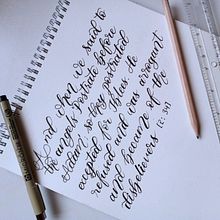 And when we said to
the angels, Prostrate before
Adam; so they prostrated
except for Iblees. He
refused and was arrogant
and became of the
disbelievers [2:34]